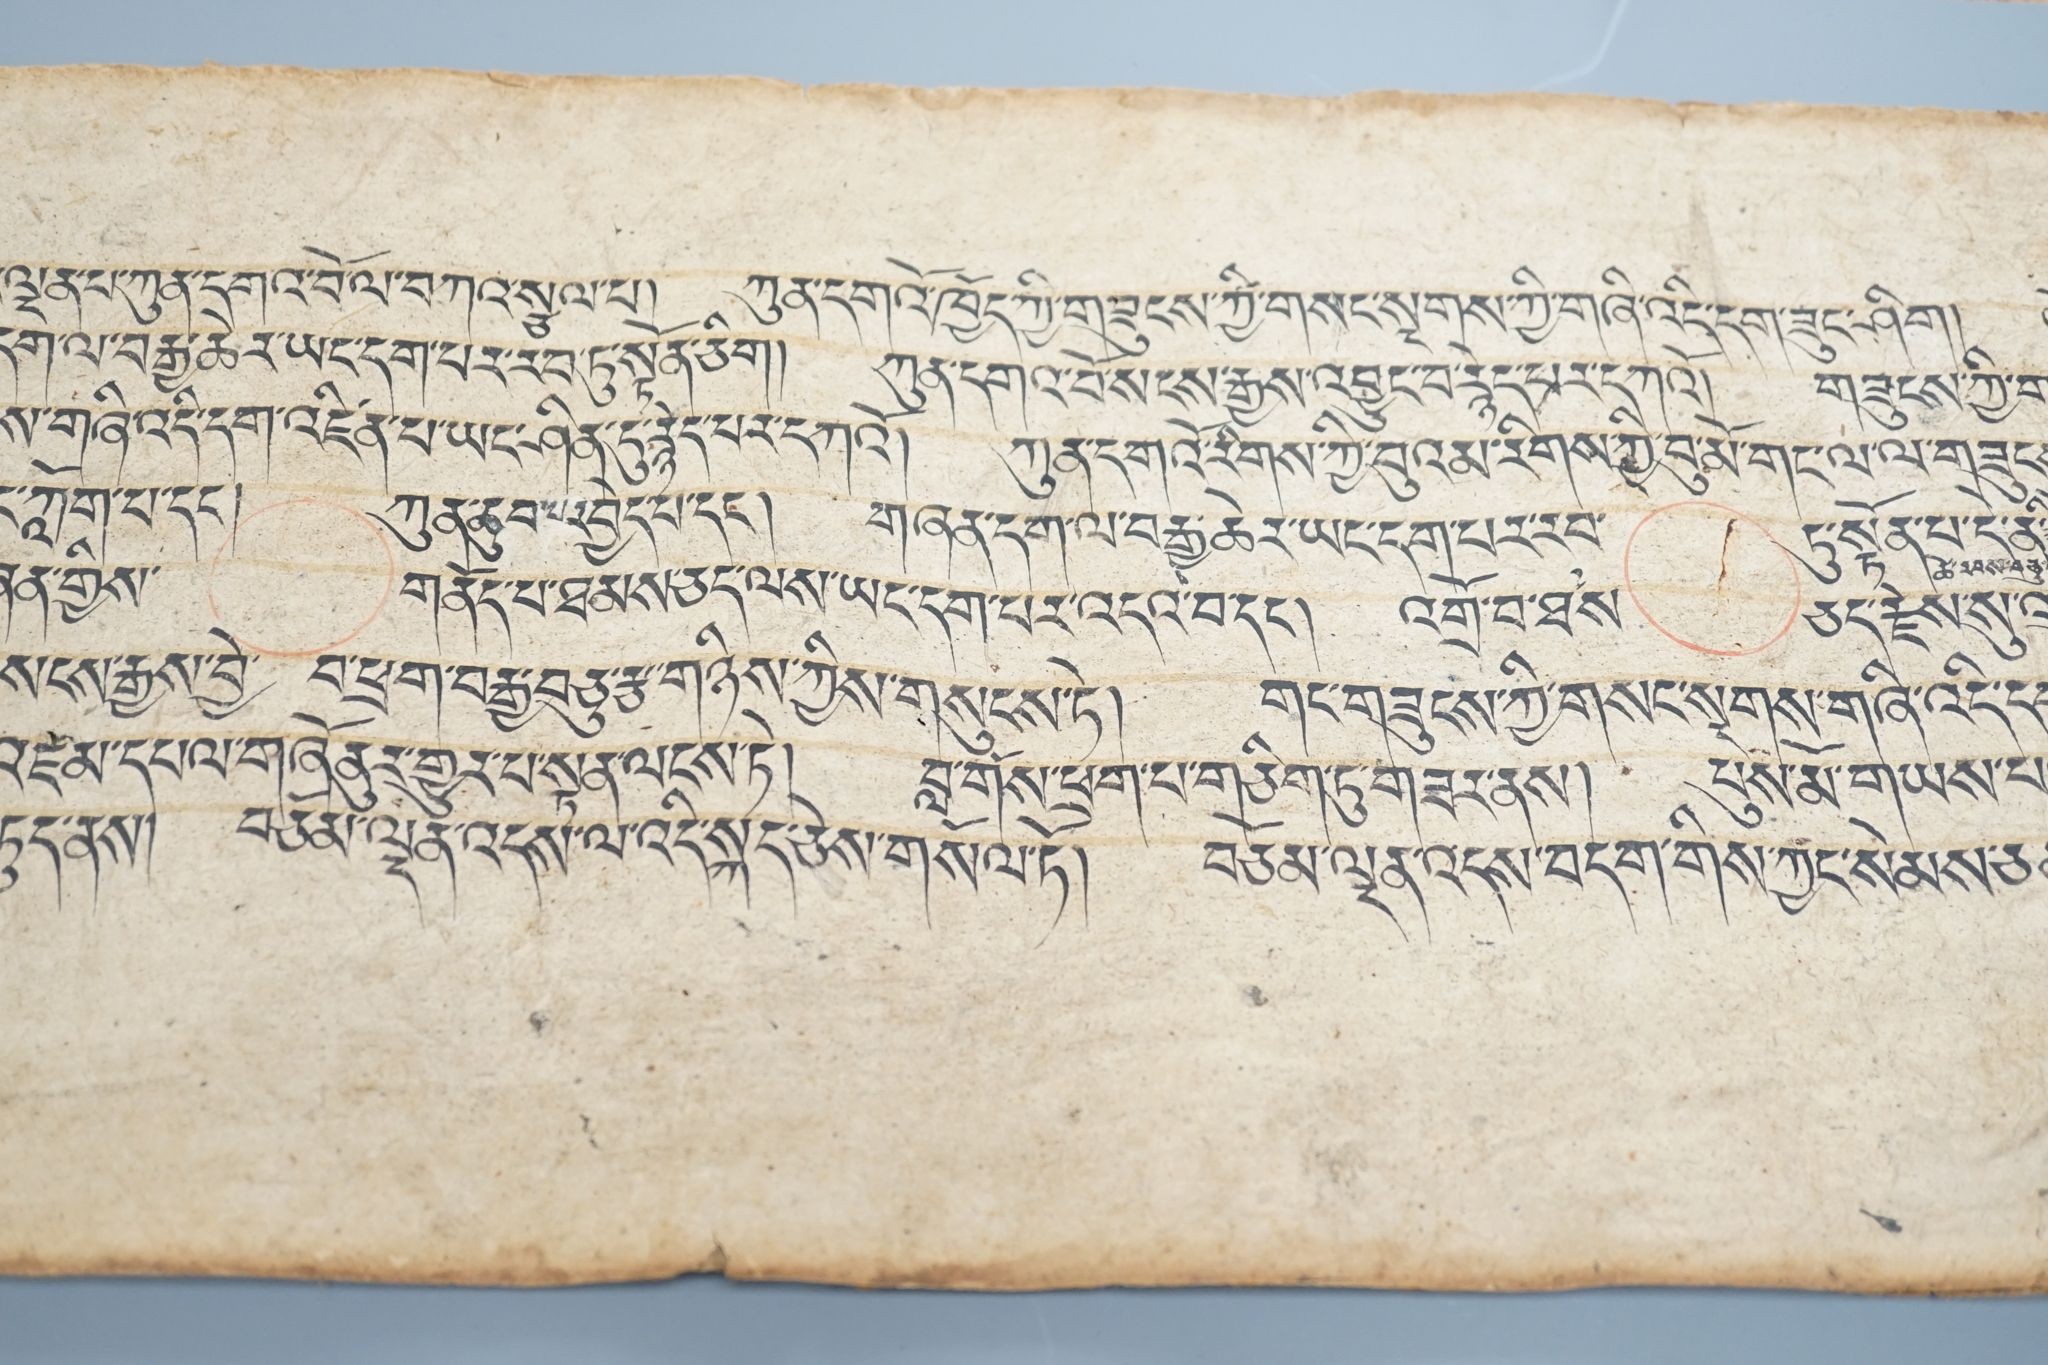 ལྡན་པ་ཀུན་དགའ་བོ་ལ་བཀའ་སྩལ་པ། ཀུན་དགའ་བོ་ཁྱོད་ཀྱི་གཟུངས་ཀྱི་གསང་སྔགས་ཀྱི་གཞི་འདི་དག་ཟུང་ཤིག།
དག་ལ་བརྒྱ་ཆེར་ཡང་དག་པར་རབ་ཏུ་སྟོན་ཅིག། ཀུན་དགའ་བོ་སངས་རྒྱས་འབྱུང་བ་རྙེད་པར་དཀའོ། གཟུངས་ཀྱི་ག
ས་གཞི་འདི་དག་འཛིན་པ་ཡང་ཤིན་དུ་རྙེད་པར་དཀའོ། ཀུན་དགའ་བོ་རིགས་ཀྱི་བུའམ་རིགས་ཀྱི་བུ་མོ་གང་ལ་ལ་གཟུངས
ཀློག་པ་དང། ཀུན་ཆུབ་པར་བྱེད་པ་དང། གཞན་དག་ལ་བརྒྱ་ཆེར་ཡང་དག་པར་རབ་ ཏུ་སྟོན་པ་དེ་ནི
གྱིས་ གནོད་པ་ཐམས་ཅད་ལས་ཡང་དག་པར་འདའ་བ་དང། འགྲོ་བ་ཐཾས་ ཅད་རྗེས་སུ་
སངས་རྒྱས་བྱེ་བ་ཕྲག་བརྒྱ་བཅུ་རྩ་གཉིས་ཀྱིས་གསུངས་ཏེ། གང་གཟུངས་ཀྱི་གསང་སྔགས་གཞི་འདི་ད
འཇམ་དཔལ་གཞོནུར་གྱུར་པ་སྟན་ལངས་ཏེ། བླ་གོས་ཕྲག་པ་གཅིག་ཏུ་གཟར་ནས། པུས་མོ་གཡས་པ
ཏུད་ནས། བཅོམ་ལྡན་འདས་ལ་འདི་སྐད་ཅེས་གསོལ་ཏོ། བཅོམ་ལྡན་འདས་བདག་གིས་ཀྱང་སེམས་ཅ